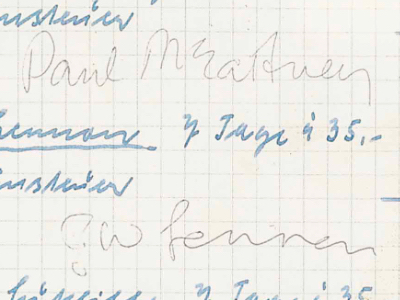 nsteuer
Paul McCartney
Lennon 7 Tage à 35.-
nsteuer
J W Lennon
7 Tage à 35